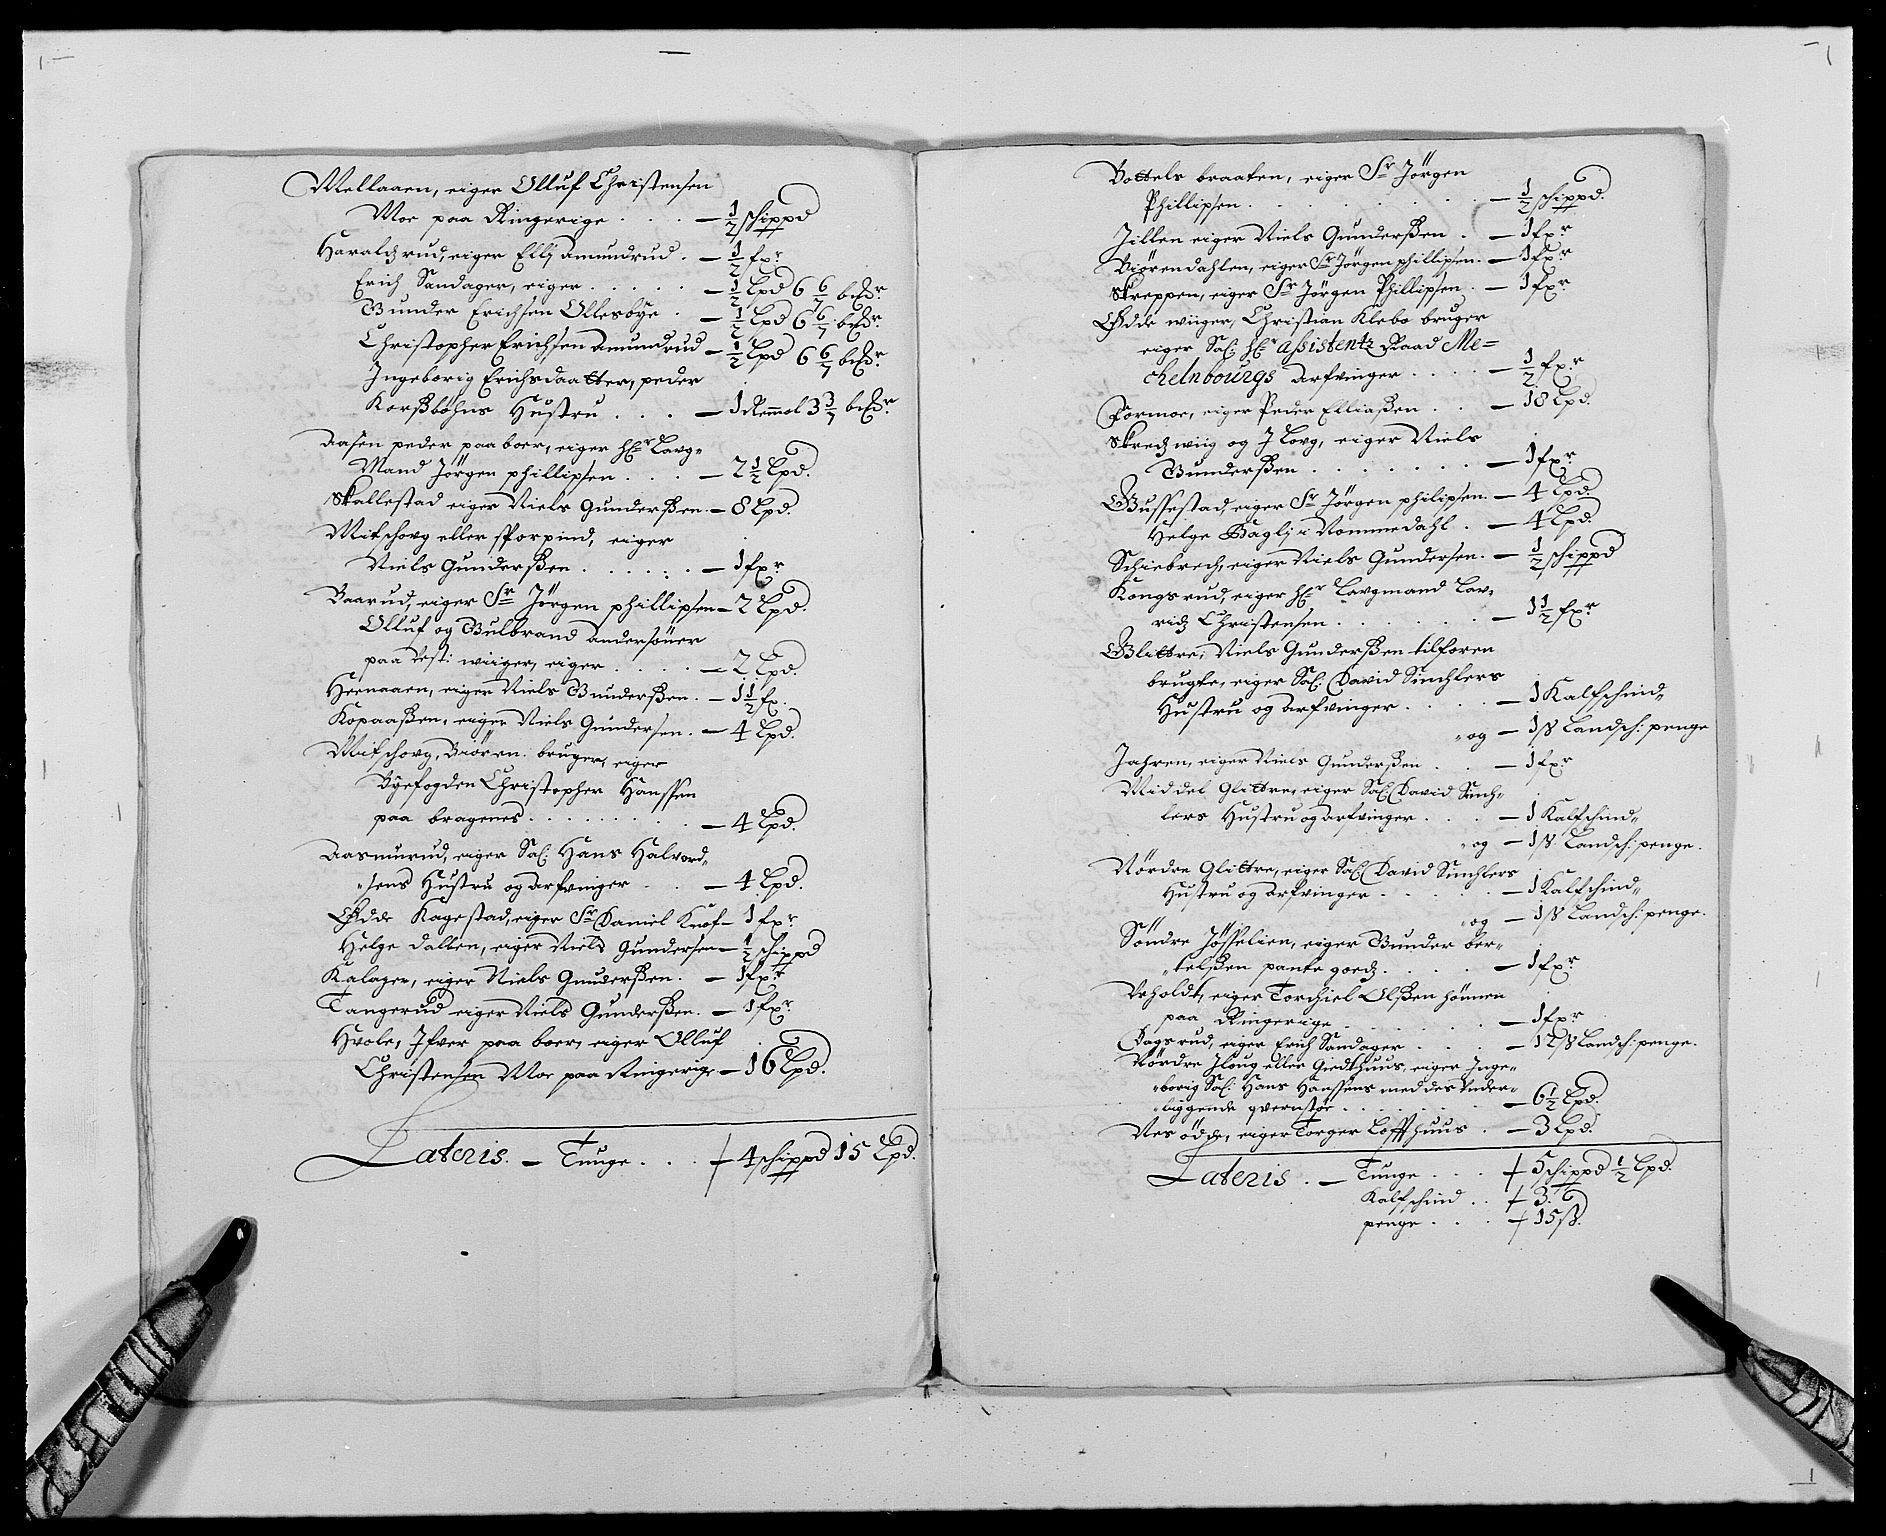 Mellaaen, eiger Olluf Christensen
Moe paa Ringerige . . . — 1/2 schippd
Haraldzrud, eiger Ellj Amundrud . — 1/2 fxr
Erich Sandager, eiger . . . . . — 1/2 Lpd 6 6/7 bchr
Gunder Erichsen Ollesbye . — 1/2 Lpd 6 6/7 bchr
Christopher Erichsen Amundrud — 1/2 Lpd 6 6/7 bchr
Ingeborig Erichsdaatter, peder
Korßbøhns Hustru . . . — 1 Remol 3 3/7 bchr
Aasen peder paa boer, eiger Hr Laug-
Mand Jørgen phillipsen . . . — 2 1/2 Lpd.
Skallestad eiger Niels Gunderßen — 8 Lpd.
Mitschoug eller Storpind, eiger
Niels Gunderßen . . . . . . — 1 fxr
Baarud, eiger Sr Jørgen phillipsen — 2 Lpd.
Olluf og Gulbrand Andersøner
paa west: wiiger, eiger . . . . — 2 Lpd.
Heenaaen, eiger Niels Gunderßen . — 1 1/2 fx.
Kopaaßen, eiger Niels Gundersen . — 4 Lpd.
Mitschoug, Biøren bruger, eiger
Byefogden Christopher Hanssen
paa bragenes . . . . . . . . — 4 Lpd.
Aasmurud, eiger Sal: Hans Halvord-
sens Hustru og arfvinger . . — 4 Lpd.
Odde Kagestad, eiger Sr Daniel Knof — 1 fxr
Helge dalben, eiger Niels Gundersen — 1/2 schippd
Kalager, eiger Niels Gunderßen . — 1 fxr
Tangerud eiger Niels Gunderßen . — 1 fxr
Hvole, Ifver paa boer, eiger Olluf
Christensen Moe paa Ringerige — 16 Lpd.
Lateris . — Tunge . . . 4 schippd 15 Lpd.
Bottels braaten, eiger Sr Jørgen
Phillipsen . . . . . . . . . — 1/2 schippd.
Jillen eiger Niels Gunderßen . — 1 fxr
Biørendahlen, eiger Sr Jørgen phillipsen . — 1 fxr
Skreppen, eiger Sr Jørgen Phillipsen . — 1 fxr
Odde wiiger, Christian Klebo bruger
eiger Sal: Hr Assistentz Raad Me=
chelnbourgs Arfvinger . . . . — 1/2 fxr
Formoe, eiger Peder Elliaßen . . — 18 Lpd.
Skredzwiig og J Loug, eiger Niels
Gunderßen . . . . . . . — 1 fxr
Gussestad, eiger Sr Jørgen philipsen . — 4 Lpd.
Helge Baglj i Nommedahl . — 4 Lpd.
Schiebrech, eiger Niels Gundersen . — 1/2 schippd
Kongsrud, eiger Hr Laugmand Lau-
ridz Christensen . . . . . . — 1 1/2 fxr
Glittre, Niels Gunderßen tilforen
brugte, eiger Sal: David Sinchlers
Hustru og Arfvinger . . . . — 1 Kalfschind
og — 1 ß Landsch: penge
Jahren, eiger Niels Gunderßen . . . — 1 fxr
Middel Glittre, eiger Sal: David Sinch-
lers Hustru og Arfvinger . . . — 1 Kalfschind
og — 1 ß Landsch: penge .
Nørdre Glittre, eiger Sal: David Sinchlers
Hustru og Arfvinger . . . . . — 1 Kalfschind
og — 1 ß Landsch: penge.
Søndre Jøsselien, eiger Gunder ber-
telßen pante goedz . . . . — 1 fxr
Veholdt, eiger Torchiel Olßen hønnen
paa Ringerige . . . . . . — 1 fxr
Dagsrud, eiger Erich Sandager . . . . — 12 ß Landsch: penge.
Nørdre Jloug eller Giedthuus, eiger Inge-
borig Sal: Hans Hanssens med des under-
liggende qvernstøe . . . . . . . — 6 1/2 Lpd.
Nes ødde, eiger Torger Loffthuus . — 3 Lpd.
Lateris . — Tunge . . . 5 schippd 1/2 Lpd.
Kalfschind . . 3.
penge . . . 15 ß.